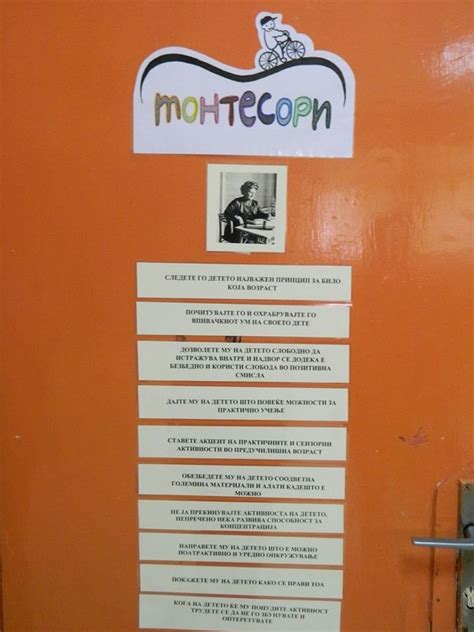 монтесори
СЛЕДЕТЕ ГО ДЕТЕТО НАЈВАЖЕН ПРИНЦИП ЗА БИЛО
КОЈА ВОЗРАСТ
ПОЧИТУВАЈТЕ ГО И ОХРАБРУВАЈТЕ ГО
ВПИВАЧКИОТ УМ НА СВОЕТО ДЕТЕ
ДОЗВОЛЕТЕ МУ НА ДЕТЕТО СЛОБОДНО ДА
ИСТРАЖУВА ВНАТРЕ И НАДВОР СЕ ДОДЕКА Е
БЕЗБЕДНО И КОРИСТИ СЛОБОДА ВО ПОЗИТИВНА
СМИСЛА
ДАЈТЕ МУ НА ДЕТЕТО ШТО ПОВЕЌЕ МОЖНОСТИ ЗА
ПРАКТИЧНО УЧЕЊЕ
СТАВЕТЕ АКЦЕНТ НА ПРАКТИЧНИТЕ И СЕНЗОРНИ
АКТИВНОСТИ ВО ПРЕДУЧИЛИШНА ВОЗРАСТ
ОБЕЗБЕДЕТЕ МУ НА ДЕТЕТО СООДВЕТНА
ГОЛЕМИНА МАТЕРИЈАЛИ И АЛАТИ КАДЕШТО Е
МОЖНО
НЕ ЈА ПРЕКИНУВАЈТЕ АКТИВНОСТА НА ДЕТЕТО,
НЕПРЕЧЕНО НЕКА РАЗВИВА СПОСОБНОСТ ЗА
КОНЦЕНТРАЦИЈА
НАПРАВЕТЕ МУ НА ДЕТЕТО ШТО Е МОЖНО
ПОАТРАКТИВНО И УРЕДНО ОПКРУЖУВАЊЕ
ПОКАЖЕТЕ МУ НА ДЕТЕТО КАКО СЕ ПРАВИ ТОА
КОГА НА ДЕТЕТО ЌЕ МУ ПОНУДИТЕ АКТИВНОСТ
ТРУДЕТЕ СЕ ДА НЕ ГО ЗБУНУВАТЕ И
ОПТЕРЕТУВАТЕ